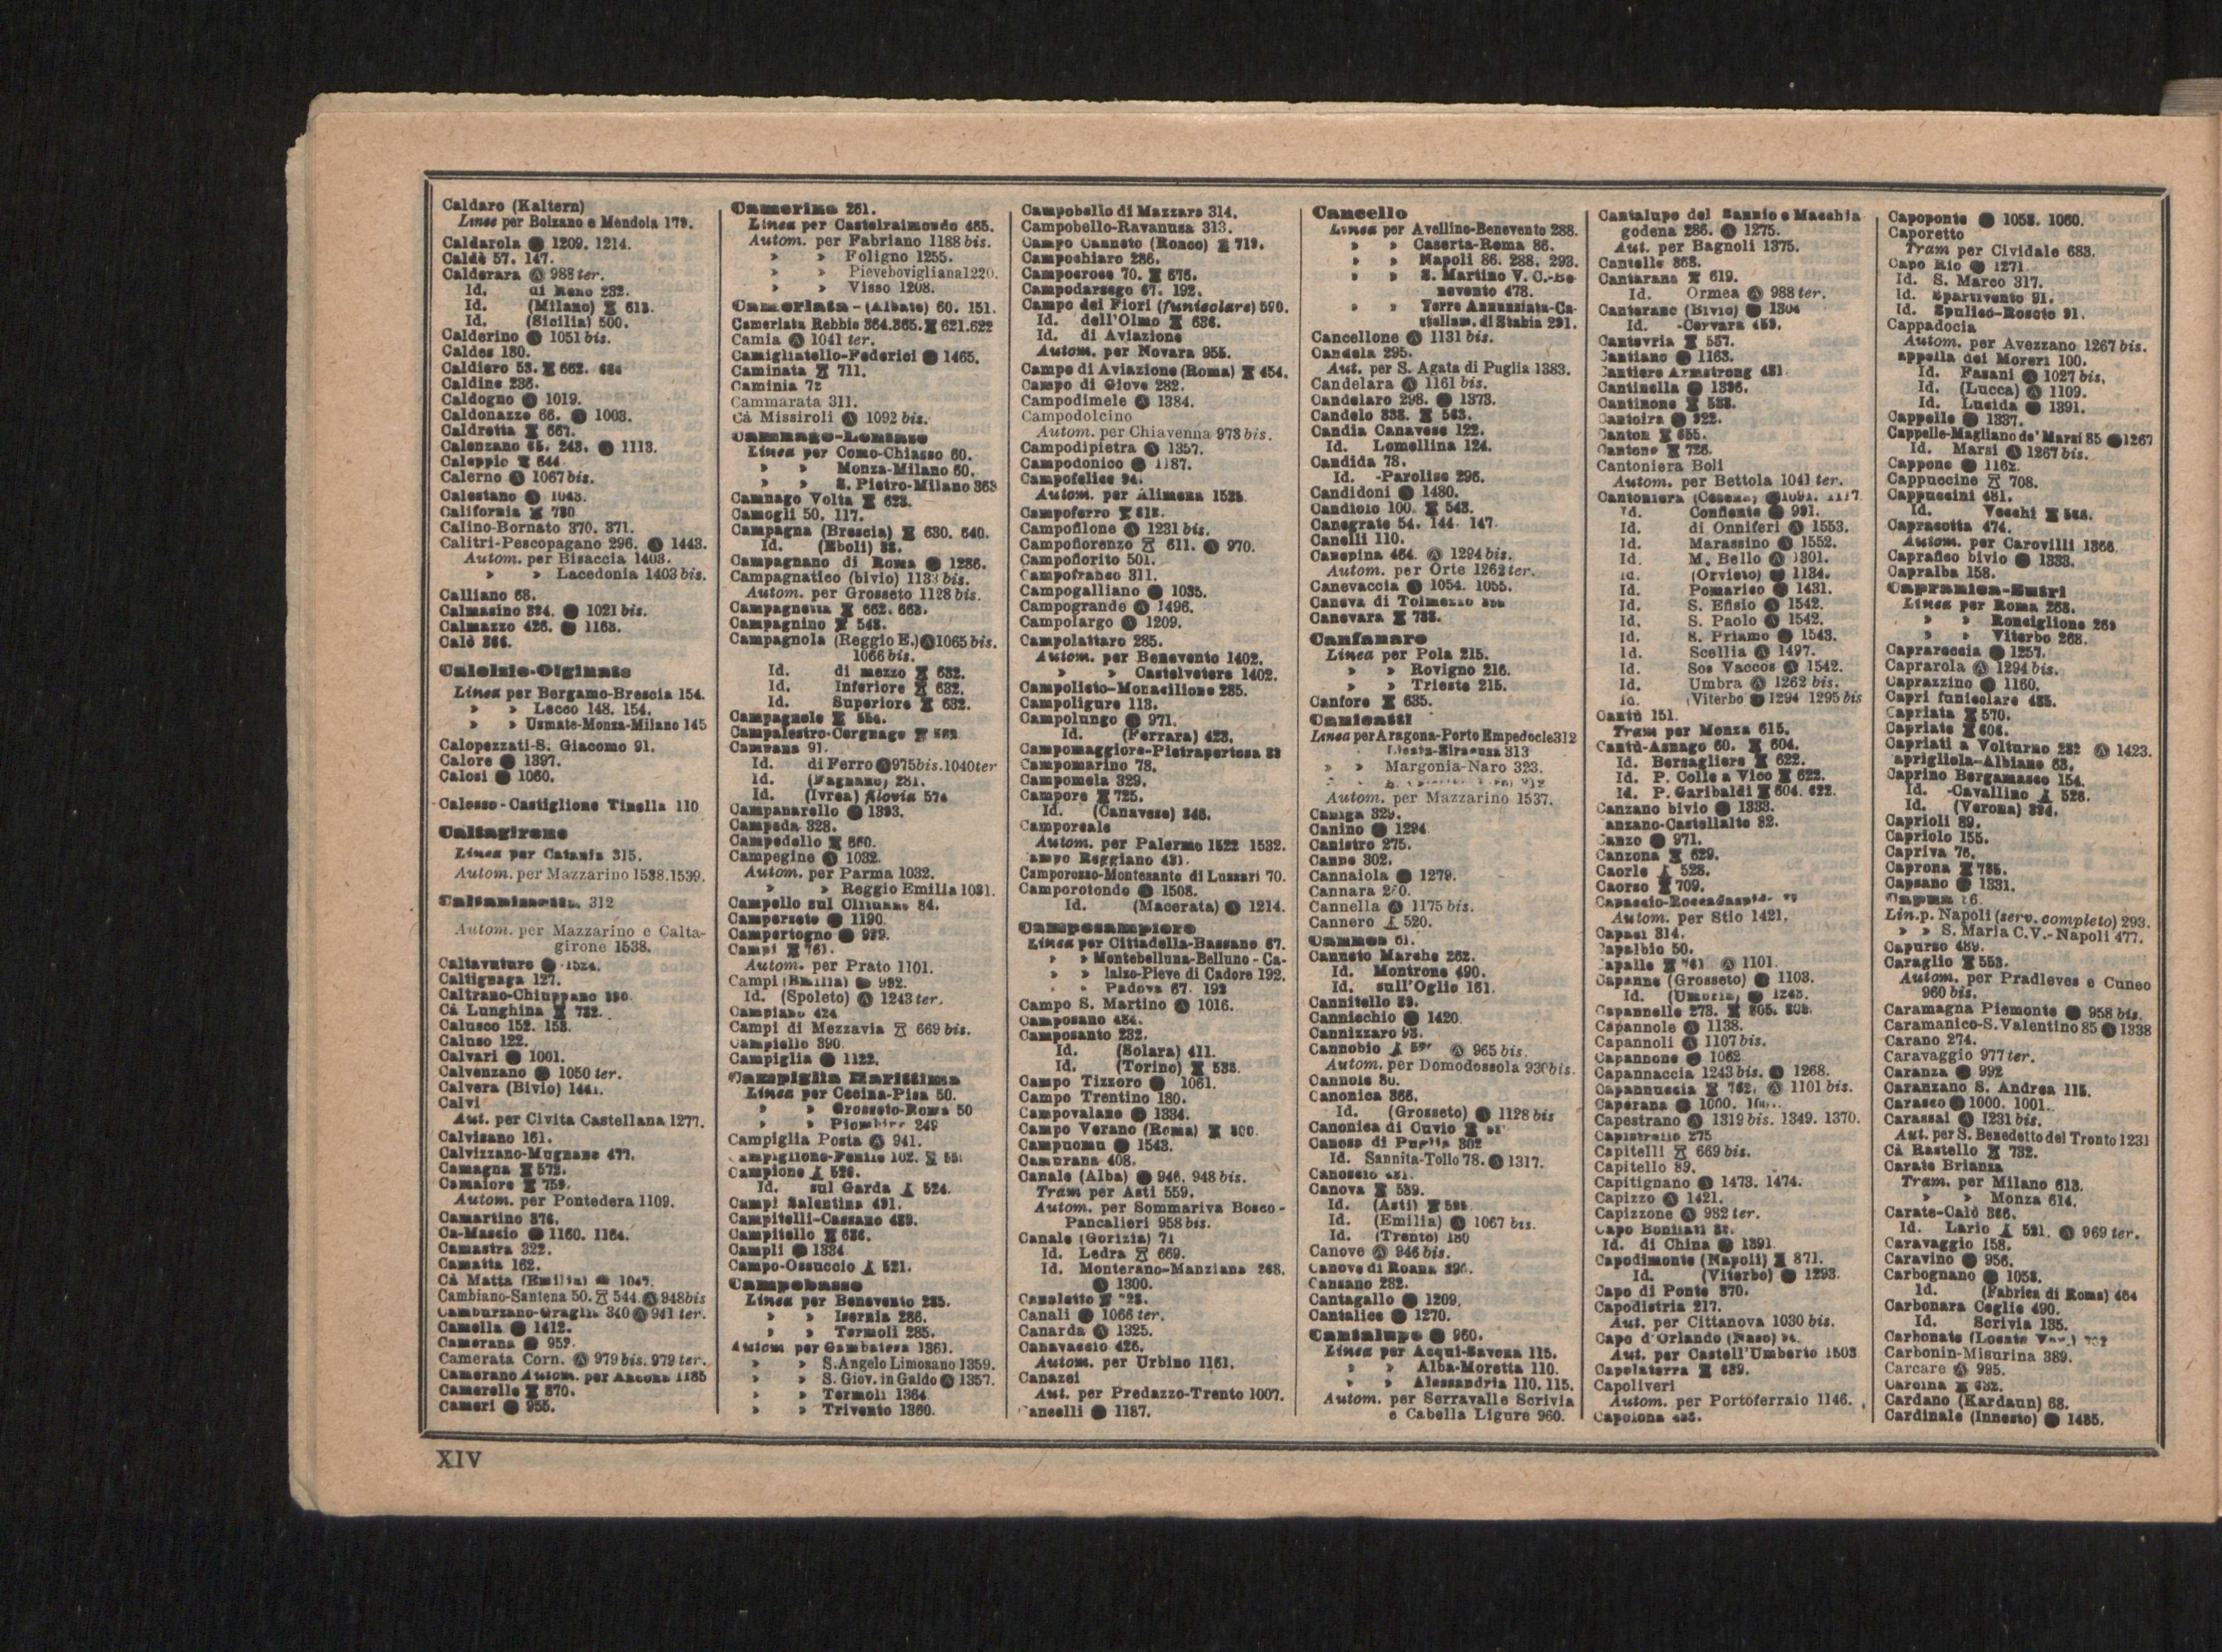 Caldaro (Kaltern)
Linea per Bolzano e Mendola 179.
Caldarola Ⓐ 1209. 1214.
Caldè 57. 147.
Calderara Ⓐ 988 ter.
Id. di Reno 232.
Id. (Milano) 613.
Id. (Sicilia) 500.
Calderino 1051 bis.
Caldes 180.
Caldiero 53. 662. 684
Caldine 236.
Caldogno 1019.
Caldonazzo 66. 1003.
Caldretta 667.
Calenzano 65. 243. 1113.
Caleppio 644
Calerno Ⓐ 1067 bis.
Calestano 1043.
California 730
Calino-Bornato 370. 371.
Calitri-Pescopagano 296. Ⓐ 1443.
Autom. per Bisaccia 1403.
» » Lacedonia 1403 bis.
Calliano 68.
Calmasino 394. 1021 bis.
Calmazzo 426. 1163.
Calò 366.
Calolzio-Olginate
Linea per Bergamo-Brescia 154.
» » Lecco 148. 154.
» » Usmate-Monza-Milano 145
Calopezzati-S. Giacomo 91.
Calore 1397.
Calosi 1060.
Calosso-Castiglione Tinella 110
Caltagirone
Linea per Catania 315.
Autom. per Mazzarino 1538.1539.
Caltanissetta 312
Autom. per Mazzarino e Calta-
girone 1538.
Caltavuturo 1524.
Caltignaga 127.
Caltrano-Chiuppano
Cà Lunghina 732.
Calusco 152. 153.
Caluso 122.
Calvari 1001.
Calvenzano 1050 ter.
Calvera (Bivio) 1441.
Calvi
Aut. per Civita Castellana 1277.
Calvisano 161.
Calvizzano-Mugnano 477.
Camagna 572.
Camaiore 759.
Autom. per Pontedera 1109.
Camartino 376.
Ca-Mascio 1160. 1164.
Camastra 322.
Camatta 162.
Cà Matta (Emilia) 1047.
Cambiano-Santena 50. 544. Ⓐ 948bis
Camburzano-Graglia 340 Ⓐ 941 ter.
Camella 1412.
Camerana 952.
Camerata Corn. Ⓐ 979 bis. 979 ter.
Camerano Autom. per Ancona 1185
Camerelle 870.
Cameri 955.
Camerino 261.
Linea per Castelraimondo 465.
Autom. per Fabriano 1188 bis.
» » Foligno 1255.
» » Pievebovigliana 1220.
» » Visso 1208.
Camerlata-(Albate) 60. 151.
Camerlata Rebbio 364.365. 621.622
Camia Ⓐ 1041 ter.
Camigliatello-Federici 1465.
Caminata 711.
Caminia 72
Cammarata 311.
Cà Missiroli Ⓐ 1092 bis.
Camnago-Lentate
Linea per Como-Chiasso 60.
» » Monza-Milano 60.
» » S. Pietro-Milano 363
Camnago Volta 623.
Camogli 50. 117.
Campagna (Brescia) 630. 640.
Id. (Eboli) 88.
Campagnano di Roma 1286.
Campagnatico (bivio) 1133 bis.
Autom. per Grosseto 1128 bis.
Campagnetta 662. 663.
Campagnino 543.
Campagnola (Reggio E.) Ⓐ 1065 bis.
1066 bis.
Id. di mezzo 632.
Id. Inferiore 632.
Id. Superiore 632.
Campagnole 554.
Campalestro-Cergnago 562
Campana 91.
Id. di Ferro Ⓐ 975bis.1040ter
Id. (Fagnano) 281.
Id. (Ivrea) filovia 574
Campanarello 1393.
Campeda 328.
Campedello 660.
Campegine Ⓐ 1032.
Autom. per Parma 1032.
» » Reggio Emilia 1031.
Campello sul Clitunno 84.
Camperseto 1190.
Campertogno 939.
Campi 761.
Autom. per Prato 1101.
Campi (Emilia) 992.
Id. (Spoleto) Ⓐ 1243 ter.
Campiano 424
Campi di Mezzavia 669 bis.
Campiello 390
Campiglia 1122.
Campiglia Marittima
Linea per Cecina-Pisa 50.
» » Grosseto-Roma 50
» » Piombino 249
Campiglia Posta Ⓐ 941.
Campiglione-Fenile 102. 551
Campione 526.
Id. sul Garda 524.
Campi Salentina 491.
Campitelli-Cassano 489.
Campitello 636.
Campli 1334
Campo-Ossuccio 521.
Campobasso
Linea per Benevento 285.
» » Isernia 286.
» » Termoli 285.
Autom per Gambatesa 1361.
» » S. Angelo Limosano 1359.
» » S. Giov. in Galdo Ⓐ 1357.
» » Termoli 1364
» » Trivento 1360.
Campobello di Mazzara 314.
Campobello-Ravanusa 313.
Campo Canneto (Ronco) 719.
Campochiaro 286.
Campocroce 70. 676.
Campodarsego 67. 192.
Campo dei Fiori (funicolare) 590.
Id. dell'Olmo 636.
Id. di Aviazione
Autom. per Novara 955.
Campo di Aviazione (Roma) 454.
Campo di Giove 282.
Campodimele Ⓐ 1384.
Campodolcino
Autom. per Chiavenna 973 bis.
Campodipietra Ⓐ 1357.
Campodonico 1187.
Campofelice 94.
Autom. per Alimena 1525.
Campoferro 618.
Campofilone Ⓐ 1231 bis.
Campoflorenzo 611. 970.
Campofiorito 501.
Campofranco 311.
Campogalliano 1035.
Campogrande Ⓐ 1496.
Campolargo Ⓐ 1209.
Campolattaro 285.
Autom. per Benevento 1402.
» » Castelvetere 1402.
Campolieto-Monacilione 285.
Campoligure 113.
Campolungo 971.
Id. (Ferrara) 423.
Campomaggiore-Pietrapertosa 88
Campomarino 78.
Campomela 329.
Campore 725.
Id. (Canavese) 346.
Camporeale
Autom. per Palermo 1522 1532.
ampo Reggiano 431.
Camporosso-Montesanto di Lussari 70.
Camporotondo 1508.
Id. (Macerata) Ⓐ 1214.
Camposampiero
Linea per Cittadella-Bassano 67.
» » Montebelluna-Belluno-Ca-
» » lalzo-Pieve di Cadore 192.
» » Padova 67. 192
Campo S. Martino Ⓐ 1016.
Camposano 484.
Camposanto 232.
Id. (Solara) 411.
Id. (Torino) 533.
Campo Tizzoro 1061.
Campo Trentino 180.
Campovalano 1334.
Campo Verano (Roma) 800.
Campuomu 1543.
Camurana 408.
Canale (Alba) 946. 948 bis.
Tram per Asti 559.
Autom. per Sommariva Bosco-
Pancalieri 958 bis.
Canale (Gorizia) 71
Id. Ledra 669.
Id. Monterano-Manziana 268.
Ⓐ 1300.
Canaletto
Canali 1066 ter.
Canarda Ⓐ 1325.
Canavaccio 426.
Autom. per Urbino 1161.
Canazei
Aut. per Predazzo-Trento 1007.
ancelli 1187.
Cancello
Linea per Avellino-Benevento 288.
» » Caserta-Roma 86.
» » Napoli 86. 288. 293.
» » S. Martino V. C.-Be-
nevento 478.
» » Torre Annunziata-Ca-
stellam. di Stabia 291.
Cancellone Ⓐ 1131 bis.
Candela 295.
Aut. per S. Agata di Puglia 1383.
Candelara Ⓐ 1161 bis.
Candelaro 298. 1373.
Candelo 338. 563.
Candia Canavese 122.
Id. Lomellina 124.
Candida 78.
Id. -Parolise 296.
Candidoni 1480.
Candiolo 100. 543.
Canegrate 54. 144. 147.
Canelli 110.
Canepina 464. Ⓐ 1294 bis.
Autom. per Orte 1262 ter.
Canevaccia 1054. 1055.
Caneva di Tolmezzo
Canevara 733.
Canfanaro
Linea per Pola 215.
» » Rovigno 216.
» » Trieste 215.
Canfore 635.
Canicattì
Linea per Aragona-Porto Empedocle 312
Licata-Siracusa 313
» » Margonia-Naro 323.
Autom. per Mazzarino 1537.
Caniga 329.
Canino 1294.
Canistro 275.
Canne 302.
Cannaiola 1279.
Cannara 260.
Cannella Ⓐ 1175 bis.
Cannero 520.
Cannes 61.
Canneto Marche 262.
Id. Montrone 490.
Id. sull'Oglio 161.
Cannitello 89.
Canniechio 1420.
Cannizzaro 93.
Cannobio Ⓐ 965 bis.
Autom. per Domodossola 930 bis.
Cannole 80.
Canonica 366.
Id. (Grosseto) 1128 bis
Canonica di Cuvio
Canosa di Puglia 302
Id. Sannita-Tollo 78. Ⓐ 1317.
Canossio 481.
Canova 539.
Id. (Asti)
Id. (Emilia) Ⓐ 1067 bis.
Id. (Trento) 180
Canove Ⓐ 946 bis.
Canove di Roana 390.
Cansano 282.
Cantagallo 1209.
Cantalice 1270.
Cantalupo 960.
Linea per Acqui-Savona 115.
» » Alba-Moretta 110.
» » Alessandria 110. 115.
Autom. per Serravalle Scrivia
e Cabella Ligure 960.
Cantalupo del Sannio e Macchia
godena 286. Ⓐ 1275.
Aut. per Bagnoli 1375.
Cantelle 368.
Cantarana 619.
Id. Ormea Ⓐ 988 ter.
Canterano (Bivio) 1304
Id. -Cervara 459.
Cantevria 557.
Cantiano 1163.
antiere Armstrong 481
Cantinella 1396.
Cantinone 533.
Cantoira 922.
Canton 655.
Cantone 726.
Cantoniera Boli
Autom. per Bettola 1041 ter.
Cantoniera (Cesena) 1091. 1117
Id. Confiente 991.
Id. di Onniferi Ⓐ 1553.
Id. Marassino Ⓐ 1552.
Id. M. Bello Ⓐ 1301.
Id. (Orvieto) 1134.
Id. Pomarico 1431.
Id. S. Efisio Ⓐ 1542.
Id. S. Paolo Ⓐ 1542.
Id. S. Priamo 1543.
Id. Scellia Ⓐ 1497.
Id. Sos Vaccos Ⓐ 1542.
Id. Umbra Ⓐ 1262 bis.
Id. (Viterbo 1294 1295 bis
Cantù 151.
Tram per Monza 615.
Cantù-Asnago 60. 604.
Id. Bersagliere 622.
Id. P. Colle a Vico 622.
Id. P. Garibaldi 604. 622.
Canzano bivio 1333.
anzano-Castellalto 82.
Canzo 971.
Canzona 629.
Caorle 528.
Caorso 709.
Capaccio-Roccadaspide
Autom. per Stio 1421.
Capaci 314.
Capalbio 50.
apalle 761 Ⓐ 1101.
Capanne (Grosseto) 1103.
Id. (Umbria) 1245.
Capannelle 273. 805. 808.
Capannole Ⓐ 1138.
Capannoli Ⓐ 1107 bis.
Capannone 1062
Capannaccia 1243 bis. 1268.
Capannuccia 762. Ⓐ 1101 bis.
Caperana 1000.
Capestrano 1319 bis. 1349. 1370.
Capistrello 275
Capitelli 669 bis.
Capitello 89.
Capitignano 1473. 1474.
Capizzo Ⓐ 1421.
Capizzone Ⓐ 982 ter.
Capo Bonifati 88.
Id. di China 1391.
Capodimonte (Napoli) 871.
Id. (Viterbo) 1293.
Capo di Ponte 370.
Capodistria 217.
Aut. per Cittanova 1030 bis.
Capo d'Orlando (Naso) 94.
Aut. per Castell'Umberto 1503
Capolaterra 639.
Capoliveri
Autom. per Portoferraio 1146.
Capolona 435.
Capoponte 1053. 1060.
Caporetto
Tram per Cividale 683.
Capo Rio 1271
Id. S. Marco 317.
Id. Spartivento 91.
Id. Spulico-Roseto 91.
Cappadocia
Autom. per Avezzano 1267 bis.
appella dei Moreri 100.
Id. Fasani Ⓐ 1027 bis.
Id. (Lucca) Ⓐ 1109.
Id. Lucida 1391.
Cappelle 1337.
Cappelle-Magliano de' Marsi 85 1267
Id. Marsi Ⓐ 1267 bis.
Cappone 1162.
Cappuccine 708.
Cappuccini 481.
Id. Vecchi 548.
Capracotta 474.
Autom. per Carovilli 1366
Caprafico bivio 1333.
Capralba 158.
Capranica-Sutri
Linea per Roma 268.
» » Ronciglione 269
» » Viterbo 268.
Caprareccia 1257.
Caprarola Ⓐ 1294 bis.
Caprazzino 1160.
Capri funicolare 485.
Capriata 570.
Capriate 606.
Capriati a Volturno 282 Ⓐ 1423.
aprigliola-Albiano 63.
Caprino Bergamasco 154.
Id. -Cavallino 526.
Id. (Verona) 394.
Caprioli 89.
Capriolo 155.
Capriva 76.
Caprona 735.
Capsano 1331.
Lin. p. Napoli (serv. completo) 293.
» » S. Maria C.V.-Napoli 477.
Capurso 489.
Caraglio 553.
Autom. per Pradleves e Cuneo
960 bis.
Caramagna Piemonte 958 bis.
Caramanico-S. Valentino 85 1338
Carano 274.
Caravaggio 977 ter.
Caranza 992
Caranzano S. Andrea 115.
Carasco 1000. 1001.
Carassai Ⓐ 1231 bis.
Aut. per S. Benedetto del Tronto 1231
Cà Rastello 732.
Carate Brianza
Tram. per Milano 613.
» » Monza 614.
Carate-Calò 366.
Id. Lario 521. Ⓐ 969 ter.
Caravaggio 158.
Caravino 956.
Carbognano 1053.
Id. (Fabrica di Roma) 464
Carbonara Ceglie 490.
Id. Scrivia 135.
Carbonate (Locate
Carbonin-Misurina 389.
Carcare Ⓐ 985.
Carcina 632.
Cardano (Kardaun) 68.
Cardinale (Innesto) 1485.
XIV